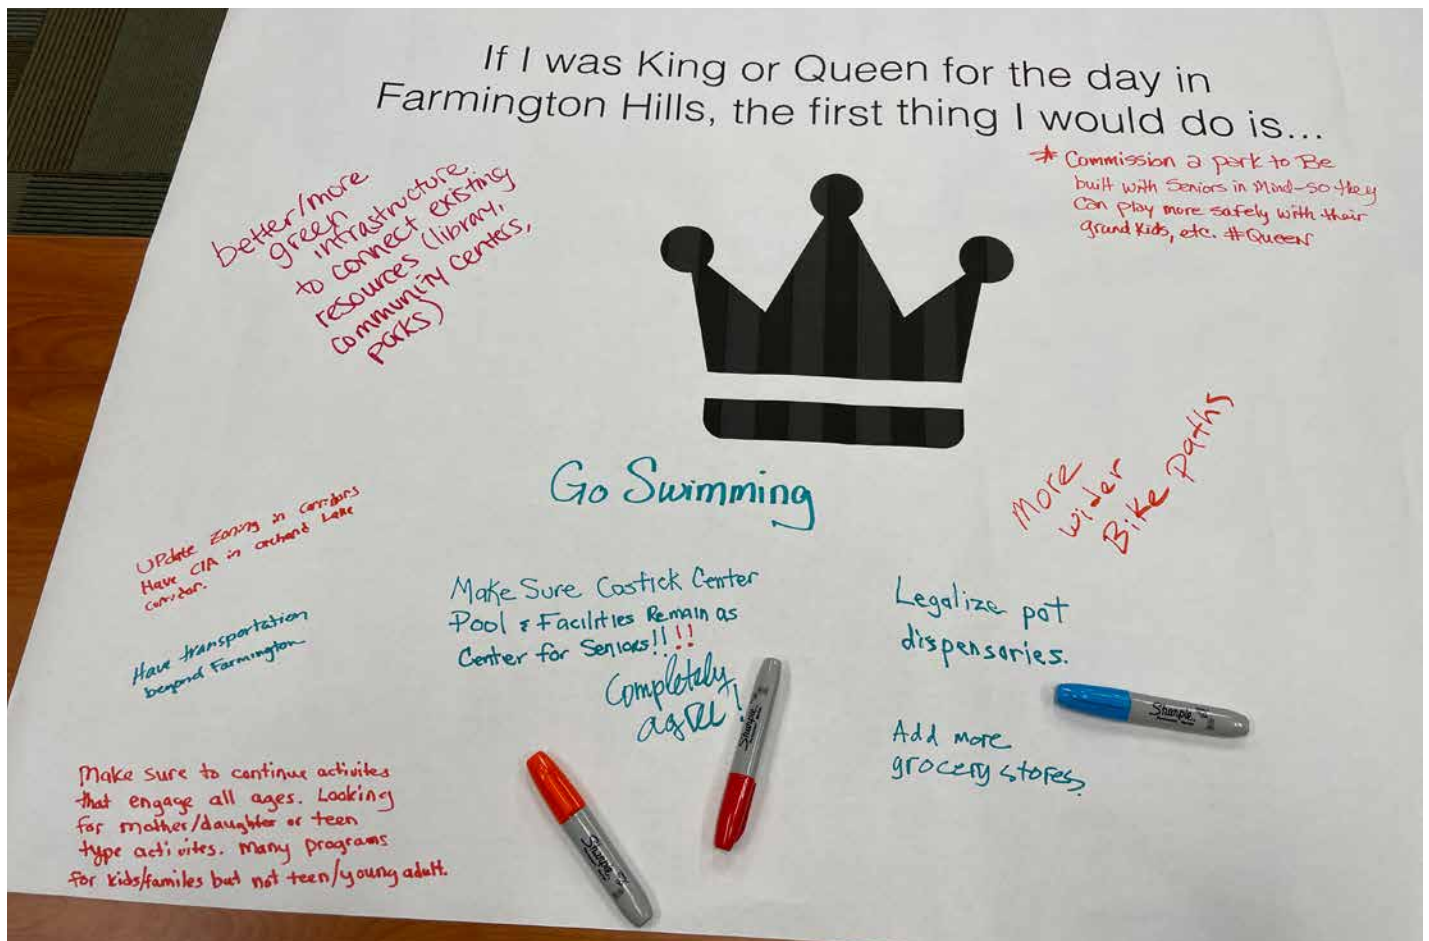 If I was King or Queen for the day in
Farmington Hills, the first thing I would do is...
better/more
green
infrastructure
to connect existing
resources (library,
community centers,
parks)
* Commission a park to Be
built with Seniors in Mind-so they
Can play more safely with their
grand kids, etc. #Queen
Go Swimming
More
wider
Bike Paths
UPdate Zoning in corridors
Have CIA in orchard Lake
corridor.
Have transportation
beyond Farmington
Make Sure Costick Center
Pool & Facilities Remain as
Center for Seniors!!!!
Completely
agree!
Legalize pot
dispensaries.
Add more
grocery stores.
Make sure to continue activites
that engage all ages. Looking
for mother/daughter or teen
type activites. Many programs
for kids/familes but not teen/young adult.
Sharpie
Sharpie
Sharpie